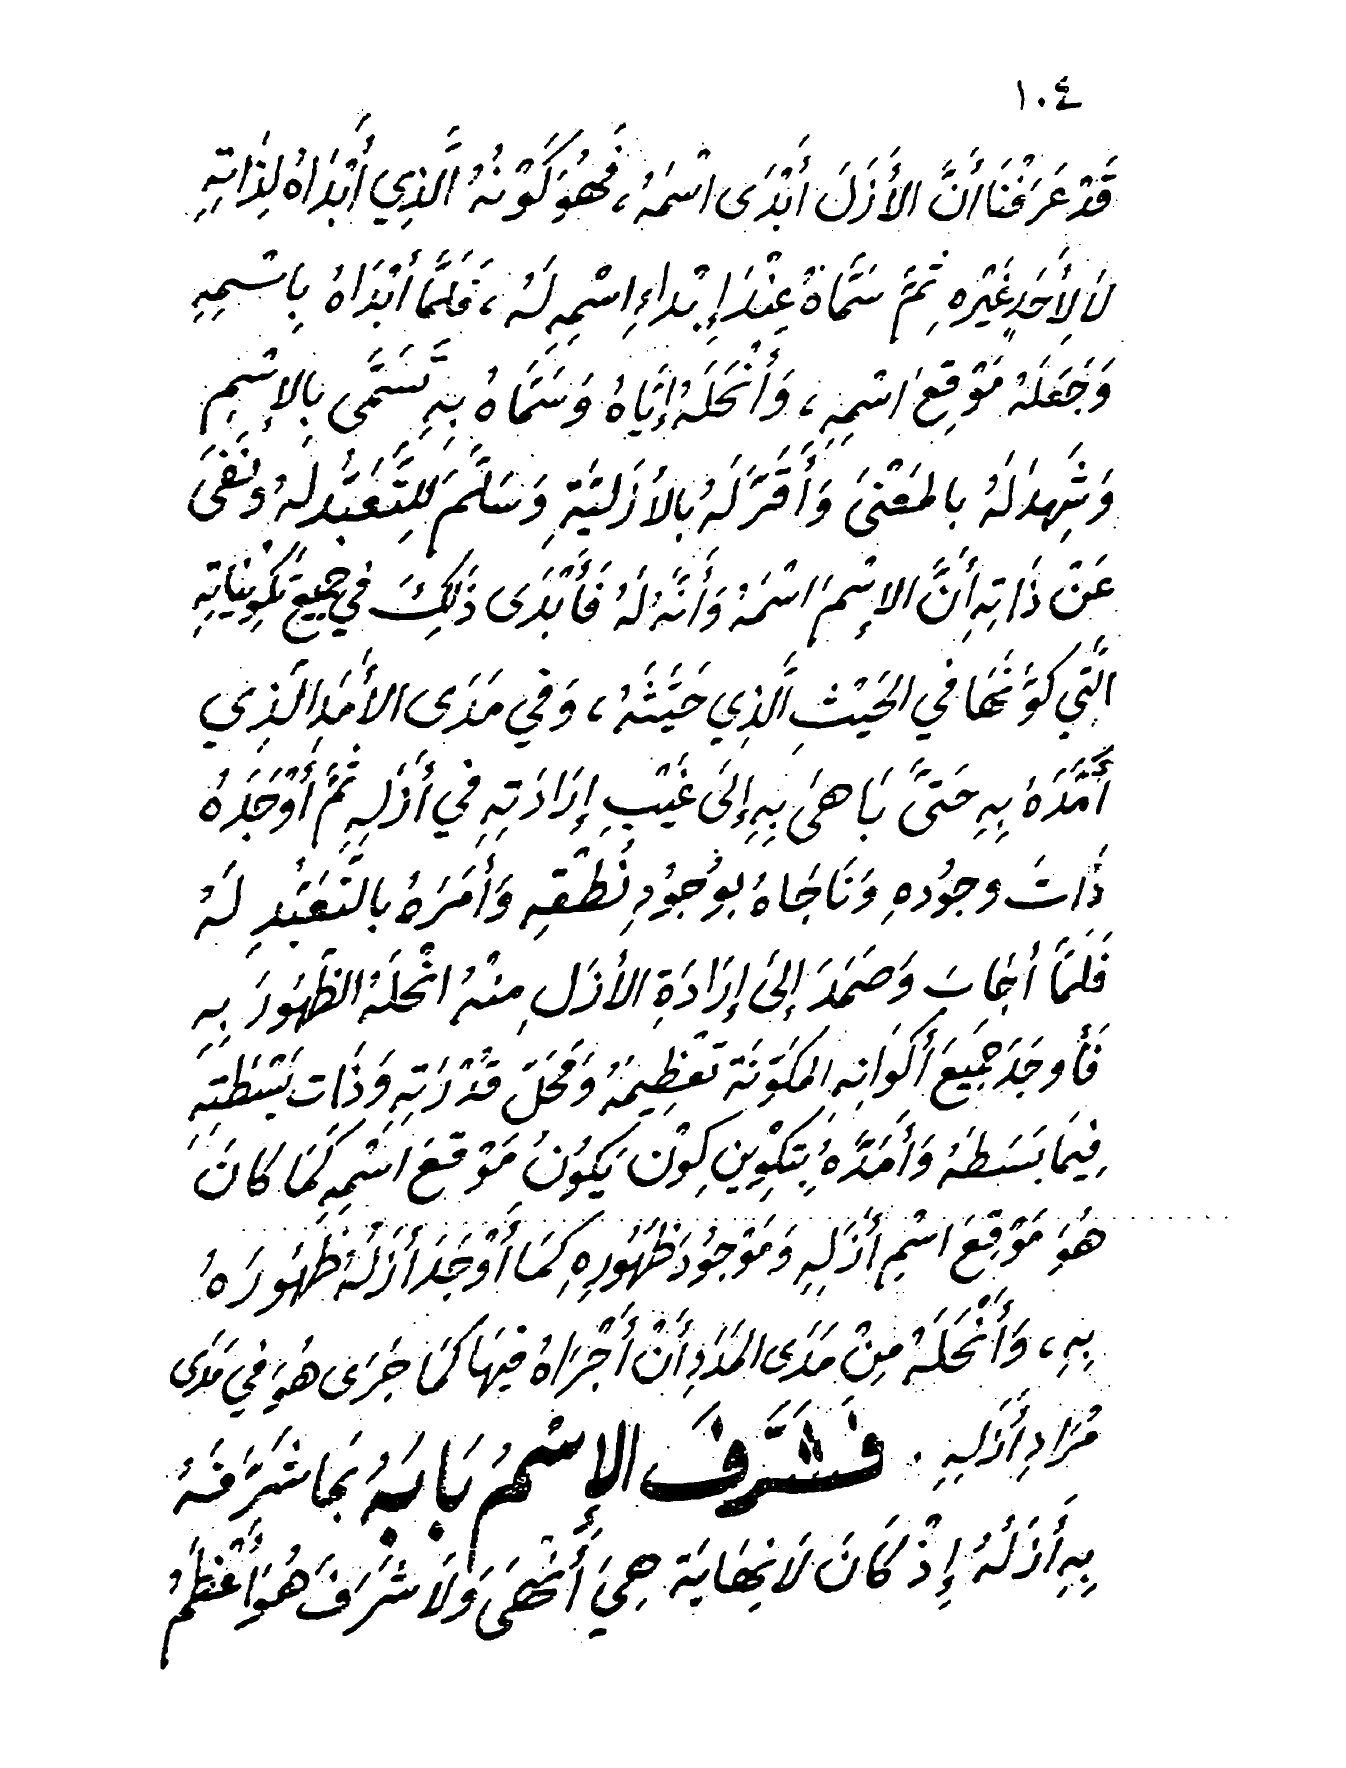 ١٠٤
قَدْ عَرَفْنَا أَنَّ الأَزَلَ أَبْدَى اسْمَهُ، فَهُوَ كَوْنُهُ الَّذِي أَبْدَاهُ لِذَاتِهِ
لَا لِأَحَدٍ غَيْرِهِ ثُمَّ سَمَّاهُ عِنْدَ إِبْدَاءِ اسْمِهِ لَهُ، فَلَمَّا أَبْدَاهُ بِاسْمِهِ
وَجَعَلَهُ مَوْقِعَ اسْمِهِ، وَأَنْحَلَهُ إِيَّاهُ وَسَمَّاهُ بِهِ تَسَمَّى بِالإِسْمِ
وَشَهِدَ لَهُ بالمَعْنَى وَأَقَرَّ لَهُ بِالأَزَلِيَّةِ وَسَلَّمَ لِلتَّعَبُّدِ لَهُ وَنَفَى
عَنْ ذَاتِهِ أَنَّ الإِسْمَ اسْمَهُ وَأَنَّهُ لَهُ فَأَبْدَى ذَلِكَ في جَمِيعِ تَكْوِينَاتِهِ
الَّتِي كَوَّنَهَا في الحَيْثِ الَّذِي حَيَّثَهُ، وَفي مَدَى الأَمَدِ الَّذِي
أَمَّدَهُ بِهِ حَتَّى بَاهَى بِهِ إِلَى غَيْبِ إِرَادَتِهِ في أَزَلِهِ ثُمَّ أَوْجَدَهُ
ذَاتَ وجُودِهِ وَنَاجَاهُ بِوُجُودِ نُطْقِهِ وَأَمَرَهُ بالتَّعَبُّدِ لَهُ
فَلَمَّا أَجَابَ وَصَمَدَ إِلَى إِرَادَةِ الأَزَلِ مِنْهُ انْحَلَهُ الظُّهُورَ بِهِ
فَأَوجَدَ جَمِيعَ أَكْوَانِهِ المُكَوَّنَةِ تَعْظِيمَهُ وَمَحَلَ قُدْرَتِهِ وَذَات بَسْطَتِهِ
فِيمَا بَسَطَهُ وَأَمَدَّهُ بِتَكْوِينِ كَوْنٍ يَكُونُ مَوْقِعَ اسْمِهِ كَمَا كَانَ
هُوَ مَوْقِعَ اسْمِ أَزَلِهِ وَمَوْجُودَ ظُهُورِهِ كَمَا أَوْجَدَ أَزَلُهُ ظُهُورَهُ
بِهِ، وَأَنْحَلَهُ مِنْ مَدَى المَدَدِ أَنْ أَجْرَاهُ فِيهَا كَمَا جَرَى هُوَ في مَدَى
مُرَادِ أَزَلِهِ. فَشَرَّفَ الإِسْمُ بَابَهُ بَمَا شَرَّفَهُ
بِهِ أَزَلُهُ إِذْ كَانَ لَا نِهَايَةَ هِيَ أَنْهَى وَلَا شَرَفَ هُوَ أَعْظَمُ